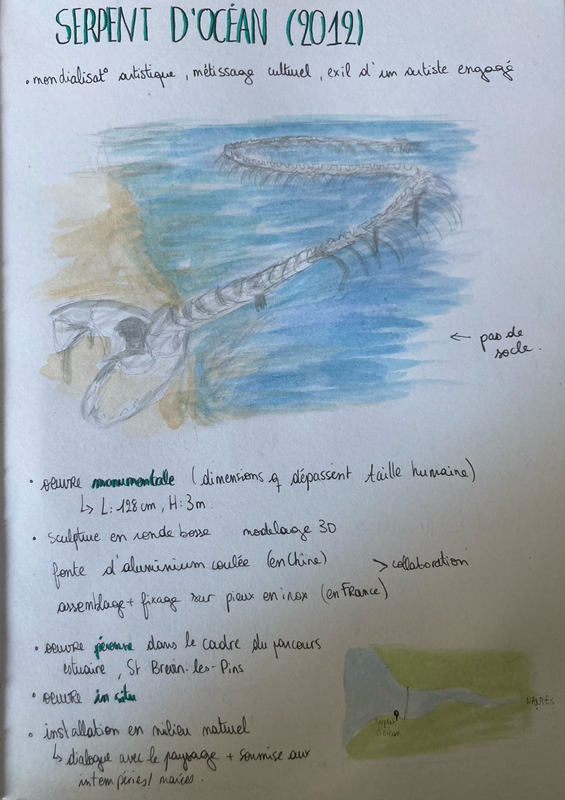 SERPENT D'OCÉAN (2012)
• mondialisat° artistique, métissage culturel, exil d'un artiste engagé
← pas de
socle.
• oeuvre monumentale (dimensions q dépassent taille humaine)
↳ L: 128 cm, H: 3 m.
• sculpture en ronde bosse modelage 3D
fonte d'aluminium coulée (en Chine)
> collaboration
assemblage + fixage sur pieux en inox (en France)
• oeuvre pérenne dans le cadre du parcours
estuaire, St Brévin-les-Pins
• oeuvre in situ
• installation en milieu naturel
↳ dialogue avec le paysage + soumise aux
intempéries/marées.
NANTES
serpent
d'océan